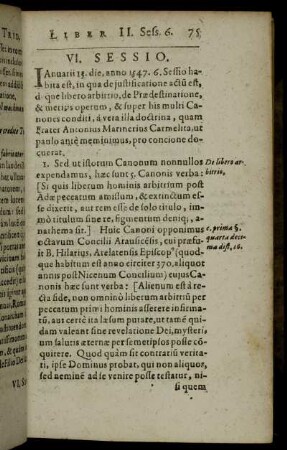 LIBER II. Sess. 6. 75
VI. SESSIO.
IAnuarii 13. die, anno 1547. 6. Sessio ha-
bita est, in qua de justificatione actũ est,
de que libero arbitrio, de Prædestinatione,
& meritis operum, & super his multi Ca-
nones conditi, à vera illa doctrina, quam
Frater Antonius Marinerius Carmelita, ut
paulo antè meminimus, pro concione do-
cuerat.
1. Sed ut istorum Canonum nonnullos
expendamus, hæc sunt 5. Canonis verba:
[Si quis liberum hominis arbitrium post
Adæ peccatum amissum, & extinctum es-
se dixerit, aut rem esse de solo titulo, im-
mò titulum sine re, figmentum deniq́;, a-
nathema sit.] Huic Canoni opponimus
octavum Concilii Arausicẽsis, cui præfu-
it B. Hilarius, Arelatensis Episcopꝰ (quod-
que habitum est anno circiter 370, aliquot
annis post Nicenum Concilium) cujus Ca-
nonis hæc sunt verba: [Alienum est à re-
cta fide, non omninò liberum arbitriũ per
peccatum primi hominis asserere infirma-
tũ, aut certè ita læsum putare, ut tamẽ qui-
dam valeant sine revelatione Dei, mysteri-
um salutis æternæ per semetipsos posse cõ-
quirere. Quod quàm sit contrariũ verita-
ti, ipse Dominus probat, qui non aliquos,
sed neminẽ ad se venire posse testatur, ni-
si quem
De libero ar-
bitrio.
c. prima §.
quarta deci-
ma dist. 16.